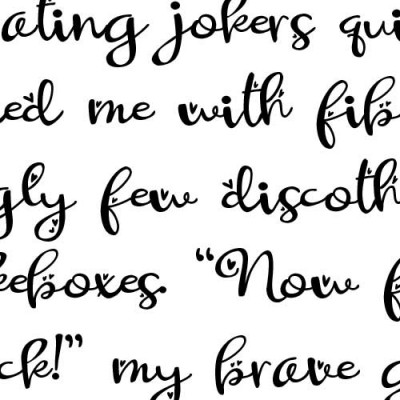 ating jokers qui
ed me with fib
gly few discoth
eeboxes. “Now f
ck!” my brave g